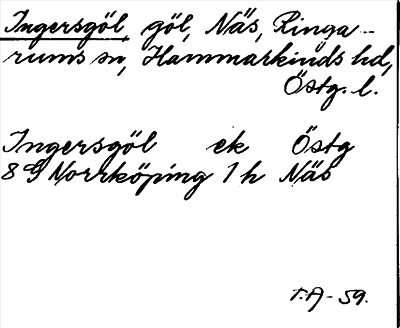 Ingersgöl, göl, Näs, Ringa-
rums sn, Hammarkinds hd,
Östg. l.
Ingersgöl ek Östg
8 G Norrköping 1 h Näs
T.A-59.